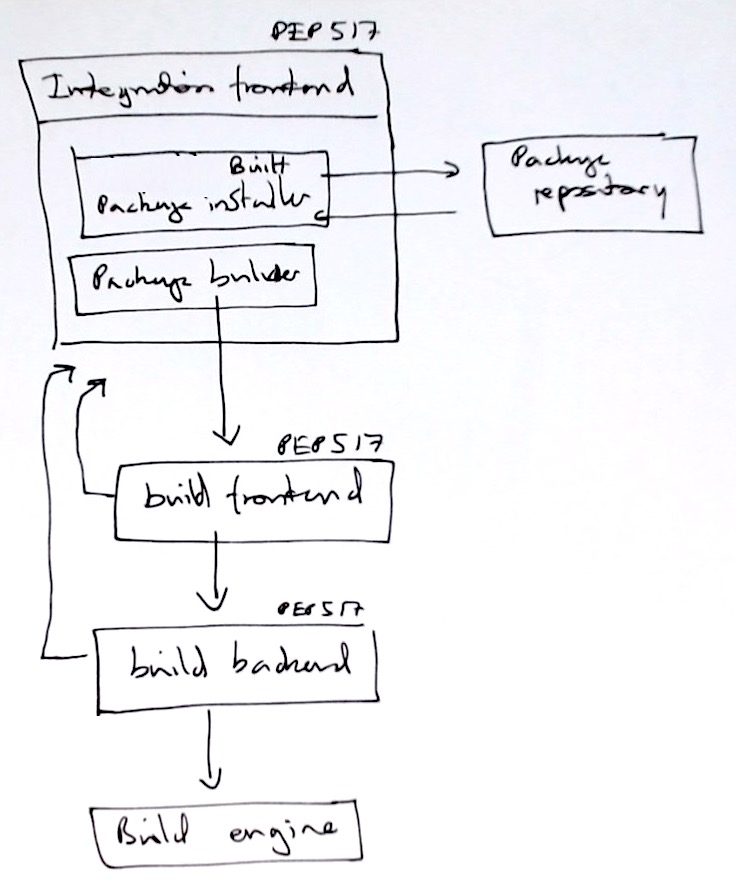 PEP 517
Integration frontend
Built
Package installer
Package
repository
Package builder
PEP 517
build frontend
PEP 517
build backend
Build engine